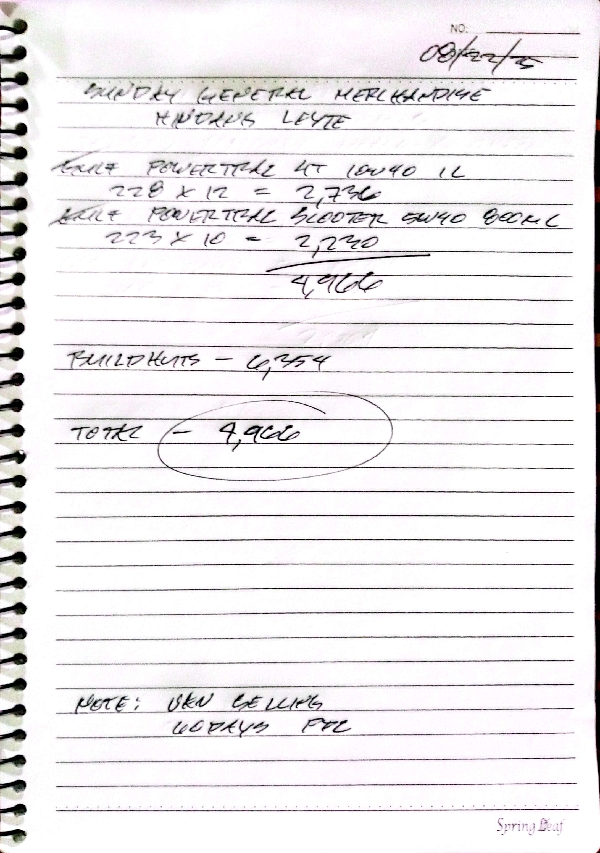 NO:
08/22/25
SUNDAY GENERAL MERCHANDISE
HINDANG LEYTE
POWERTRAC 4T 10W40 1L
228 X 12 = 2,736
POWERTRAC SCOOTER 5W40 800ML
223 X 10 = 2,230
4,966
BUILDHUTS - 6,354
TOTAL - 4,966
NOTE: VAN SELLING
60 DAYS
Spring Leaf